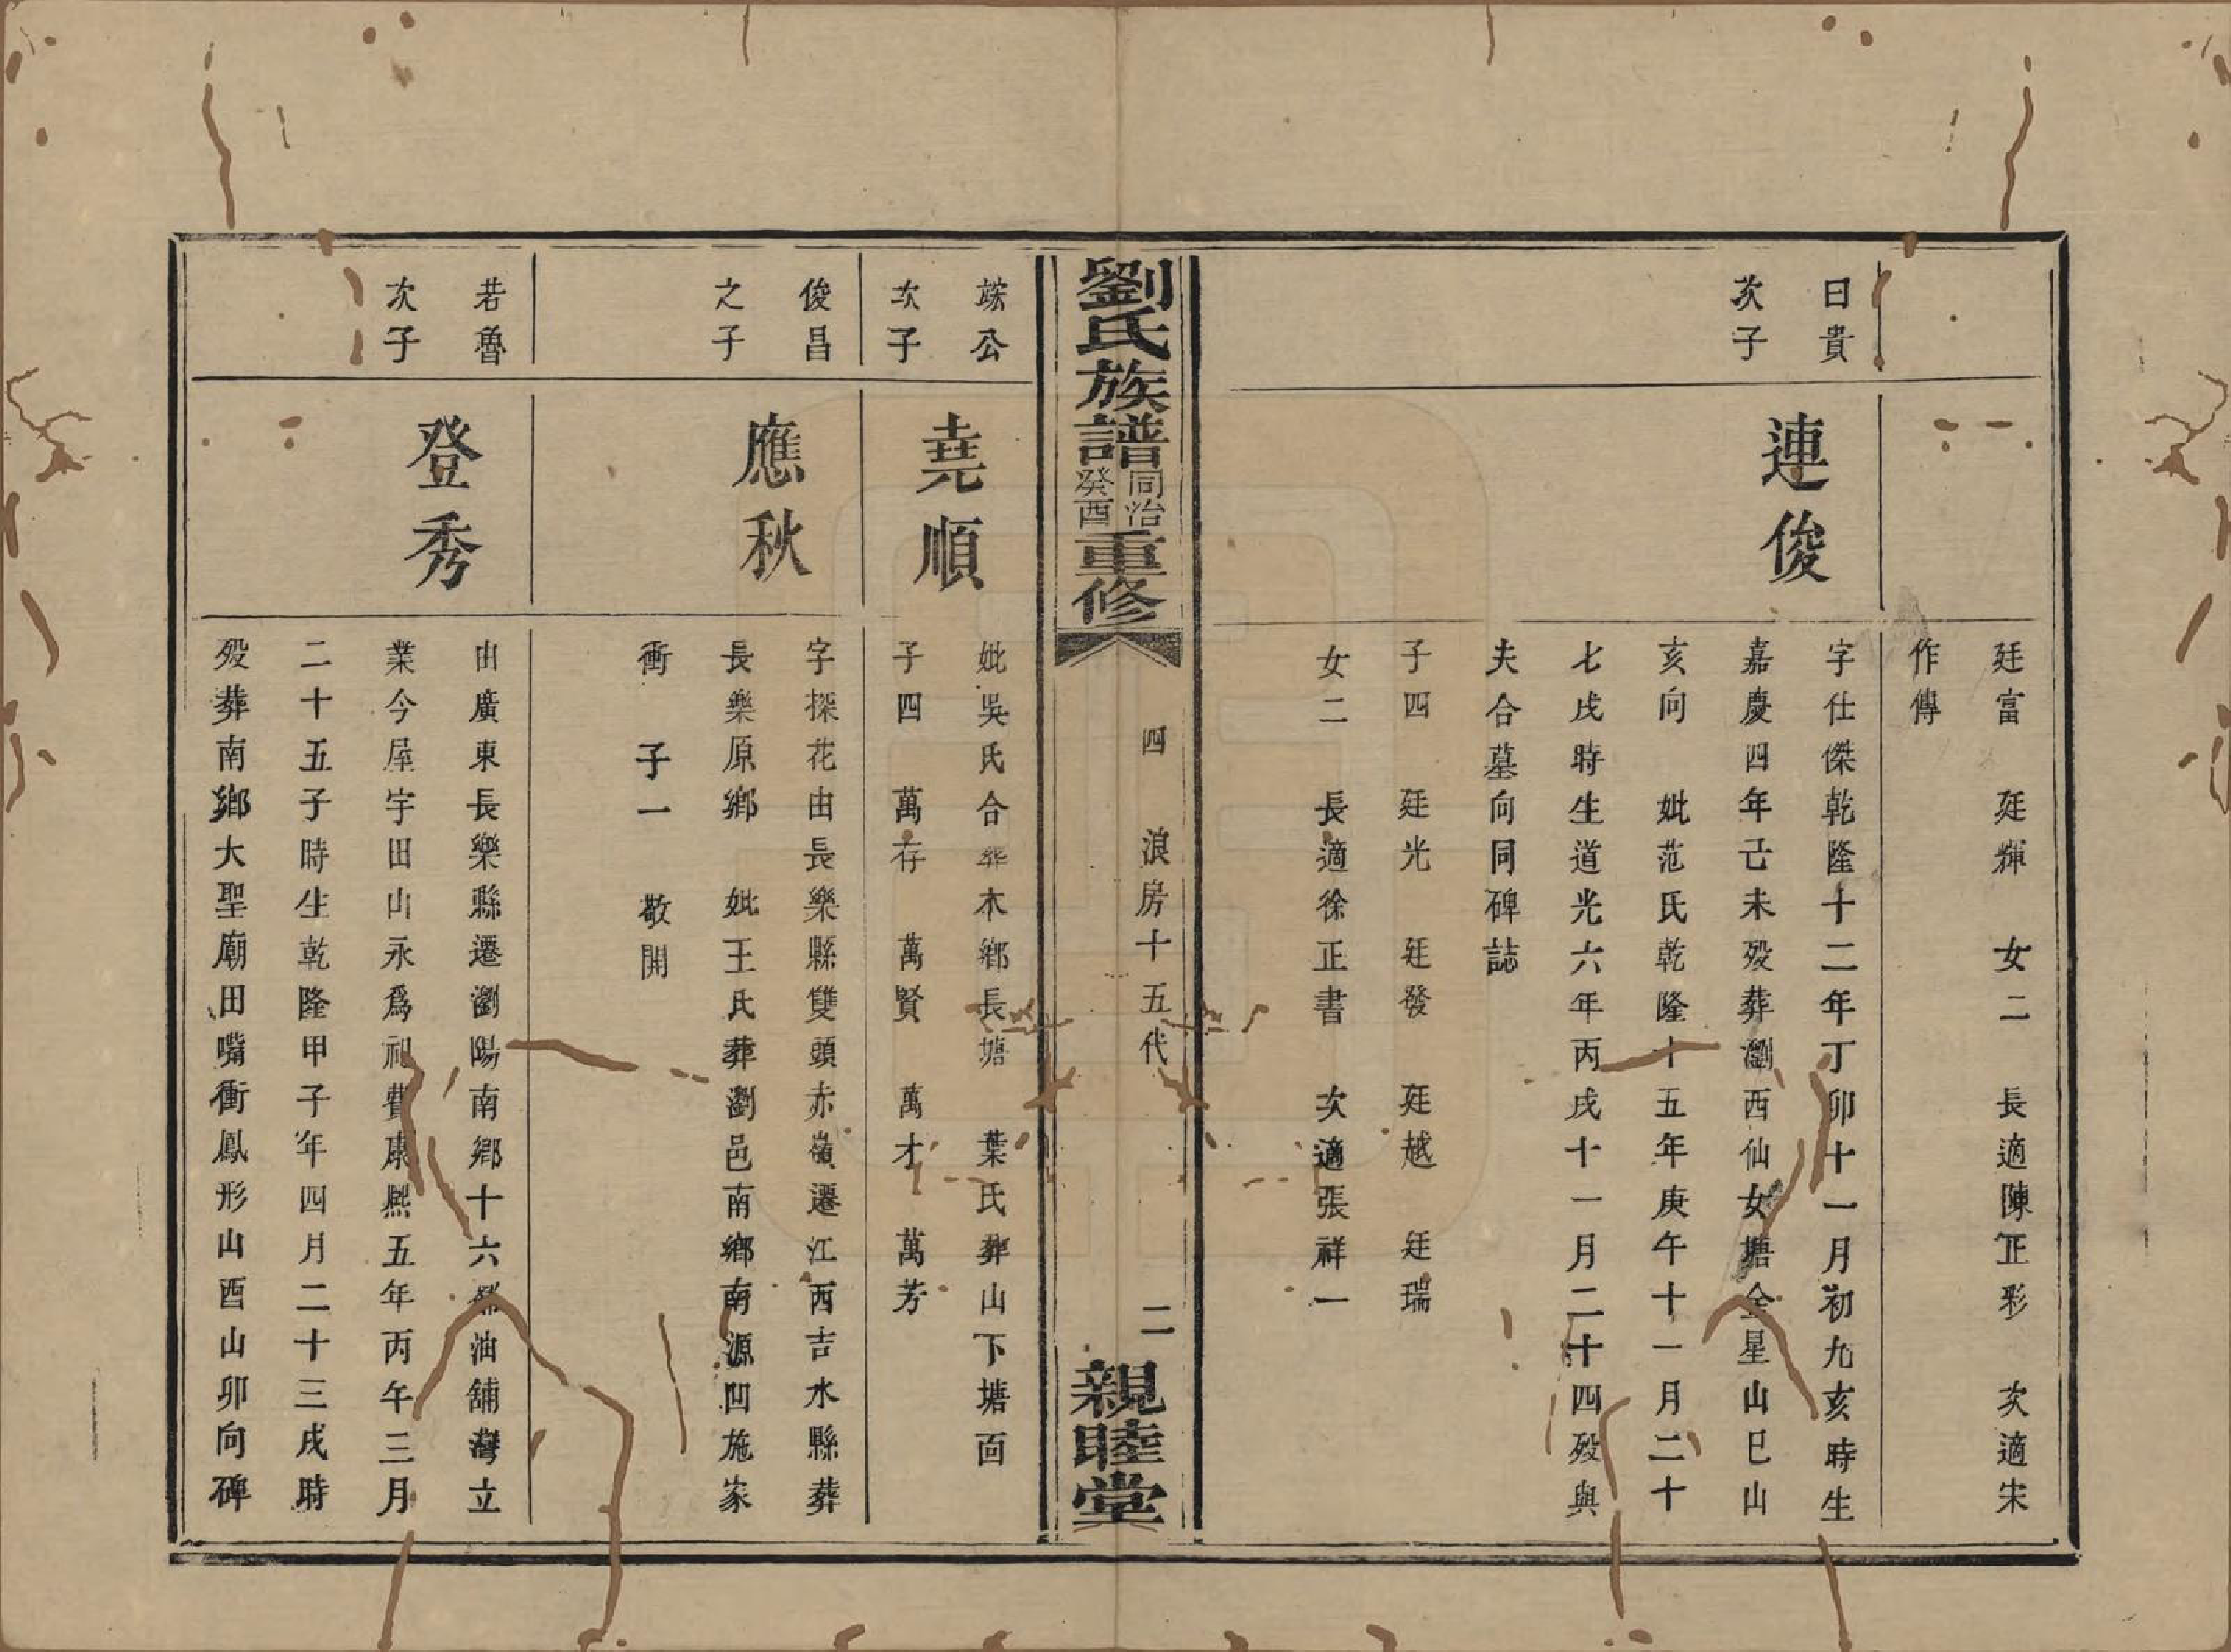 廷富　廷輝　女二　長適陳正彩　次適宋
作傳
曰貴
次子
連俊
字仕傑乾隆十二年丁卯十一月初九亥時生
嘉慶四年己未殁葬瀏西仙女塘全星山巳山
亥向　妣范氏乾隆十五年庚午十一月二十
七戌時生道光六年丙戌十一月二十四殁與
夫合墓向同碑誌
子四　廷光　廷發　廷越　廷瑞
女二　長適徐正書　次適張祥一
劉氏族譜同治癸酉重修
四　浪房十五代　二
親睦堂
公
次子
堯順
妣吳氏合葬木鄉長塘　葉氏葬山下塘面
子四　萬存　萬賢　萬才　萬芳
俊昌
之子
應秋
字探花由長樂縣雙頭赤嶺遷江西吉水縣葬
長樂原鄉　妣王氏葬瀏邑南鄉南源凹施家
衝　子一　敬開
若魯
次子
登秀
由廣東長樂縣遷瀏陽南鄉十六都油舖灣立
業今屋宇田山永爲祀費康熙五年丙午三月
二十五子時生乾隆甲子年四月二十三戌時
殁葬南鄉大聖廟田嘴衝鳳形山酉山卯向碑